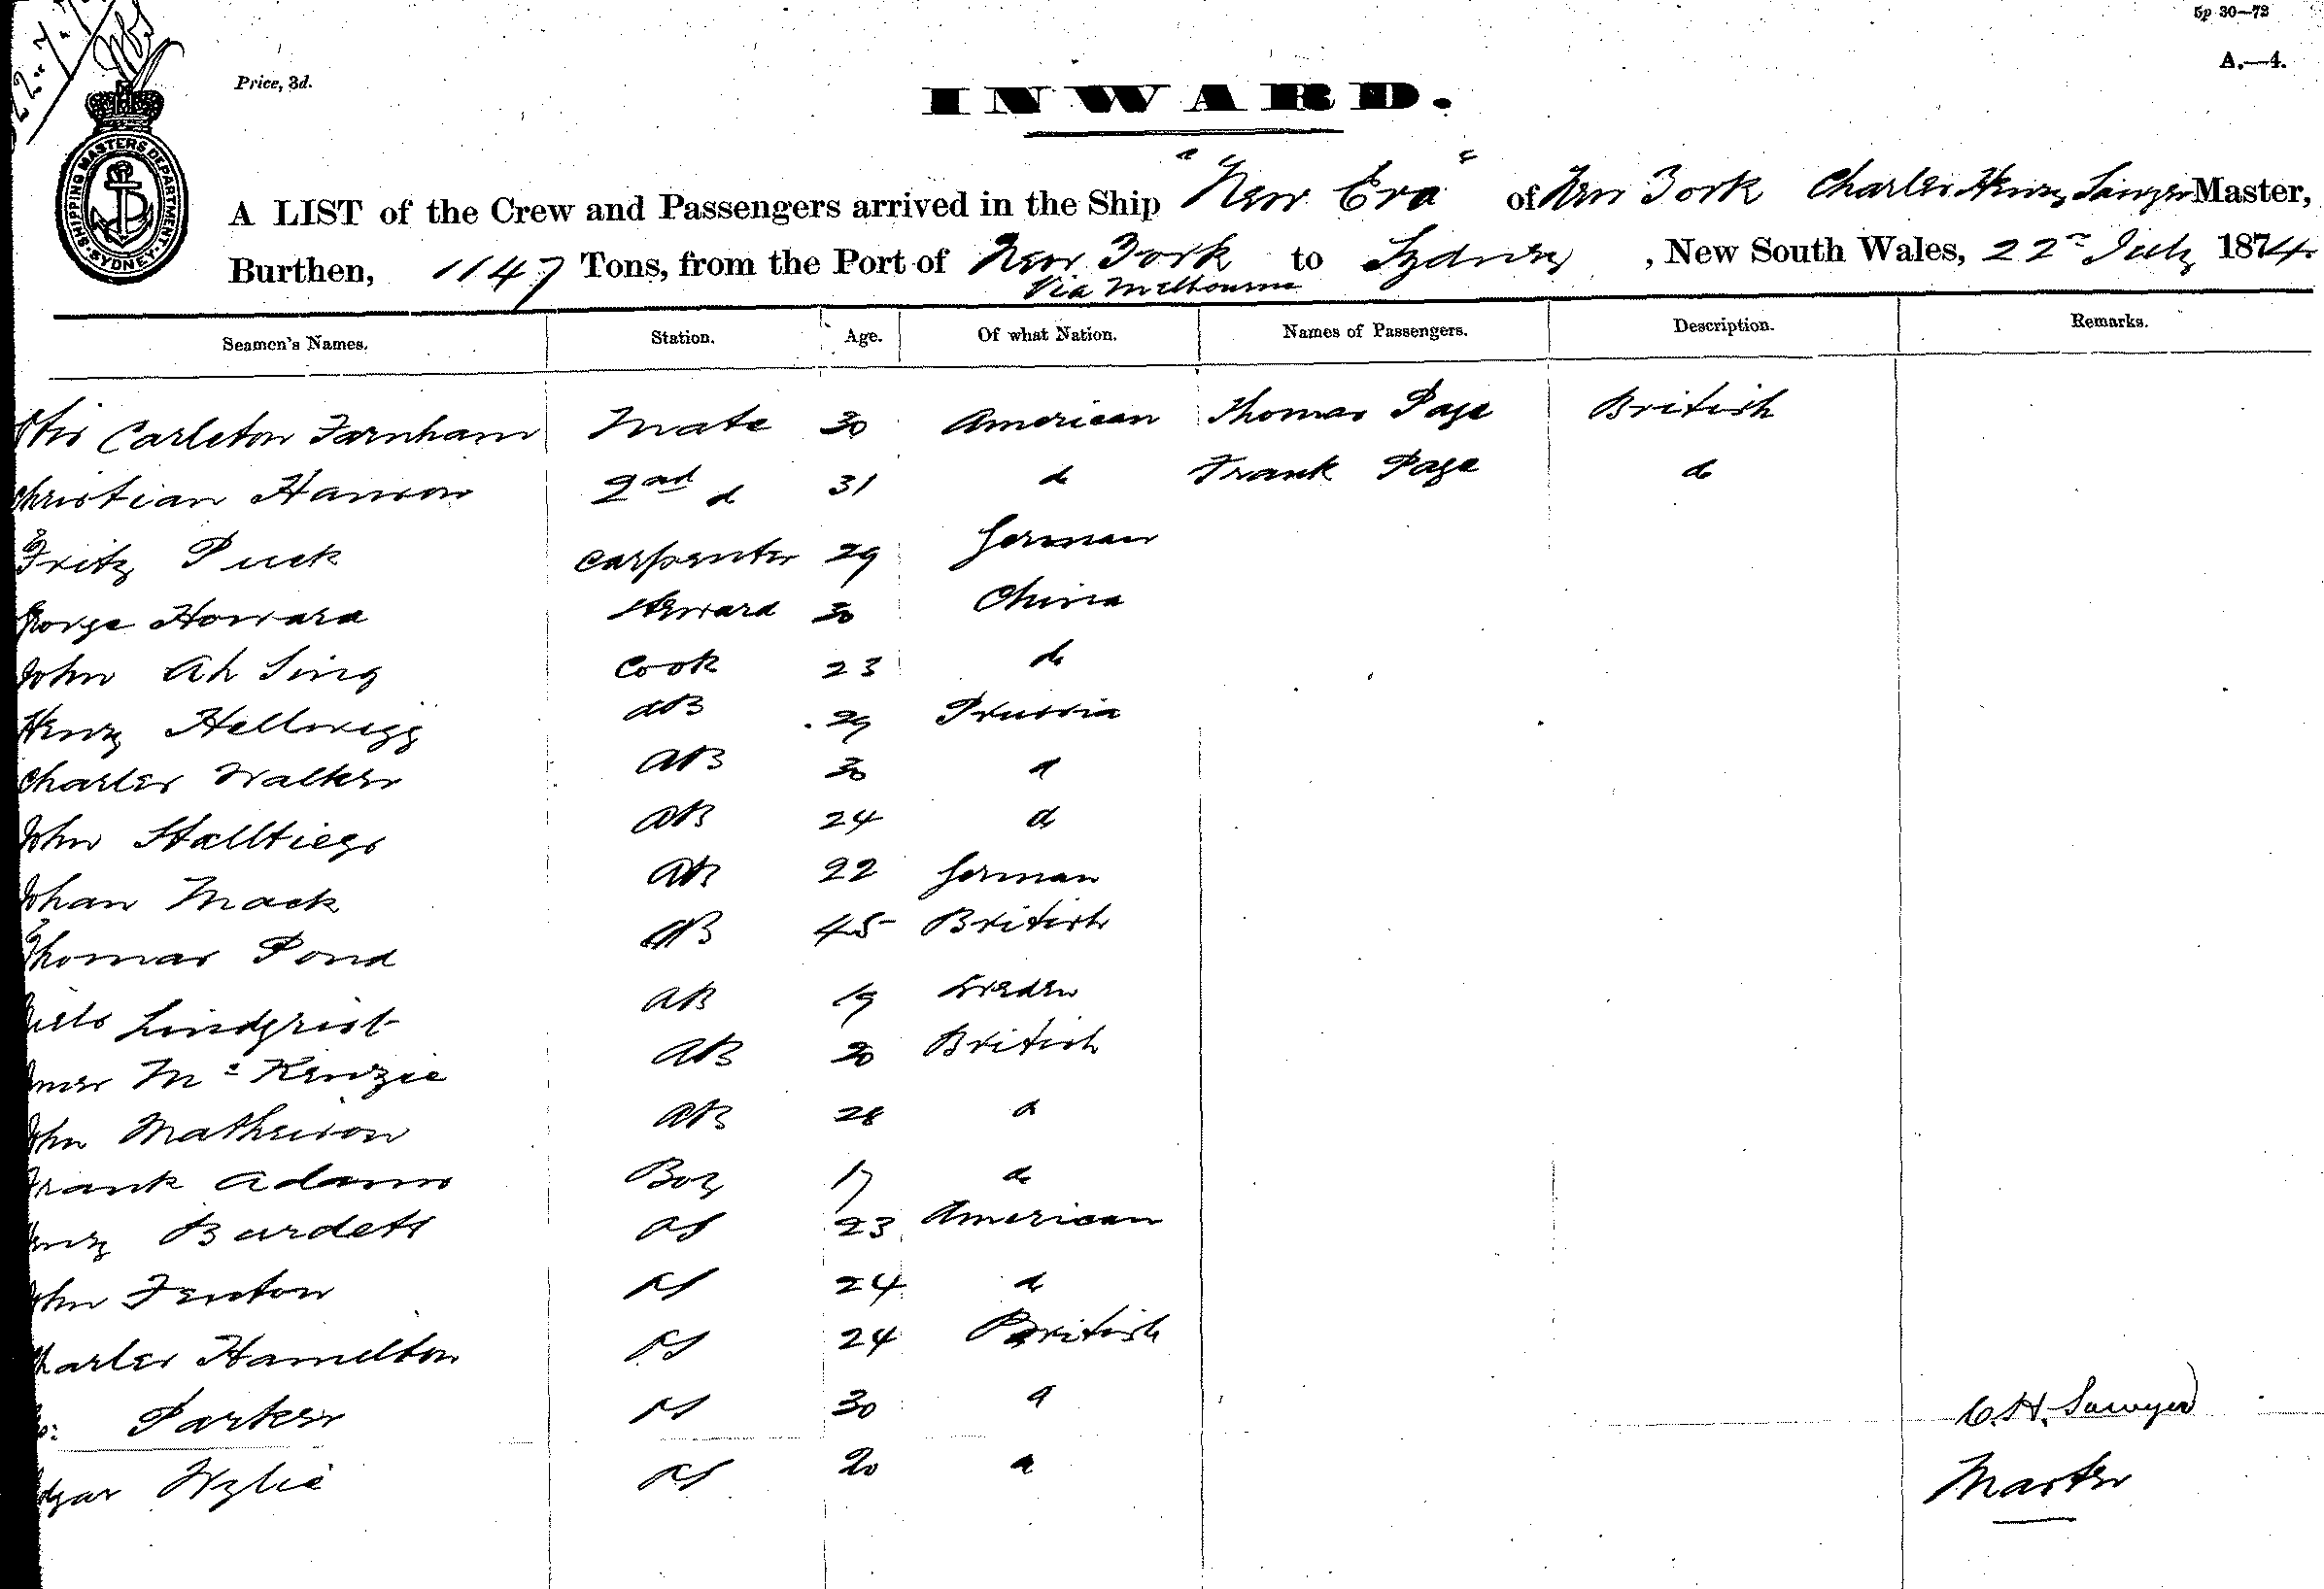 5p 30—72
A.—4.
Price, 3d.
INWARD.
SHIPPING MASTERS DEPARTMENT · SYDNEY ·
A LIST of the Crew and Passengers arrived in the Ship "New Era" of New York Charles Henry Master,
Burthen, 1147 Tons, from the Port of New York to Sydney, New South Wales, 22nd July 1874
Via Melbourne
Seamen's Names. Station. Age. Of what Nation. Names of Passengers. Description. Remarks.
Otis Carleton Farnham Mate 30 American Thomas Page British
Christian Hanson 2nd d 31 do Frank Page do
Fritz Puck Carpenter 29 German
George Howard Steward 30 China
John Ah Sing Cook 23 do
Henry Hellwigg AB 29 Prussia
Charles Walker AB 30 d
John Stalltiegs AB 24 do
Johan Mack AB 22 German
Thomas Pond AB 45 British
Niels Lindqrist AB 19 Sweden
James McKenzie AB 20 British
John Matheison AB 28 d
Frank Adams Boy 17 do
Henry Burdett OS 23 American
John Fenton OS 24 do
Charles Hamilton OS 24 British
Parker OS 30 d
Edgar Wylie OS 20 d
C. H. Sawyer
Master